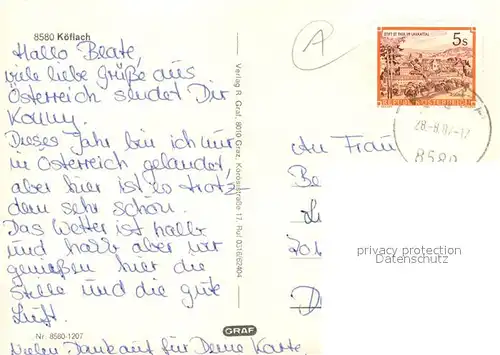 8580 Köflach
Hallo Beate,
viele liebe Grüße aus
Österreich sendet Dir
Conny.
Dieses Jahr bin ich nur
in Österreich gelandet,
aber hier ist es trotz
dem sehr schön.
Das Wetter ist halb
und halb aber wir
genießen hier die
Stille und die gute
Luft.
Nr. 8580-1207
Vielen Dank auch für Deine Karte.
Verlag R. Graf, 8010 Graz,
GRAF
A
5s
REPUBLIK ÖSTERREICH
8580
An Frau
Be
privacy protection
Datenschutz